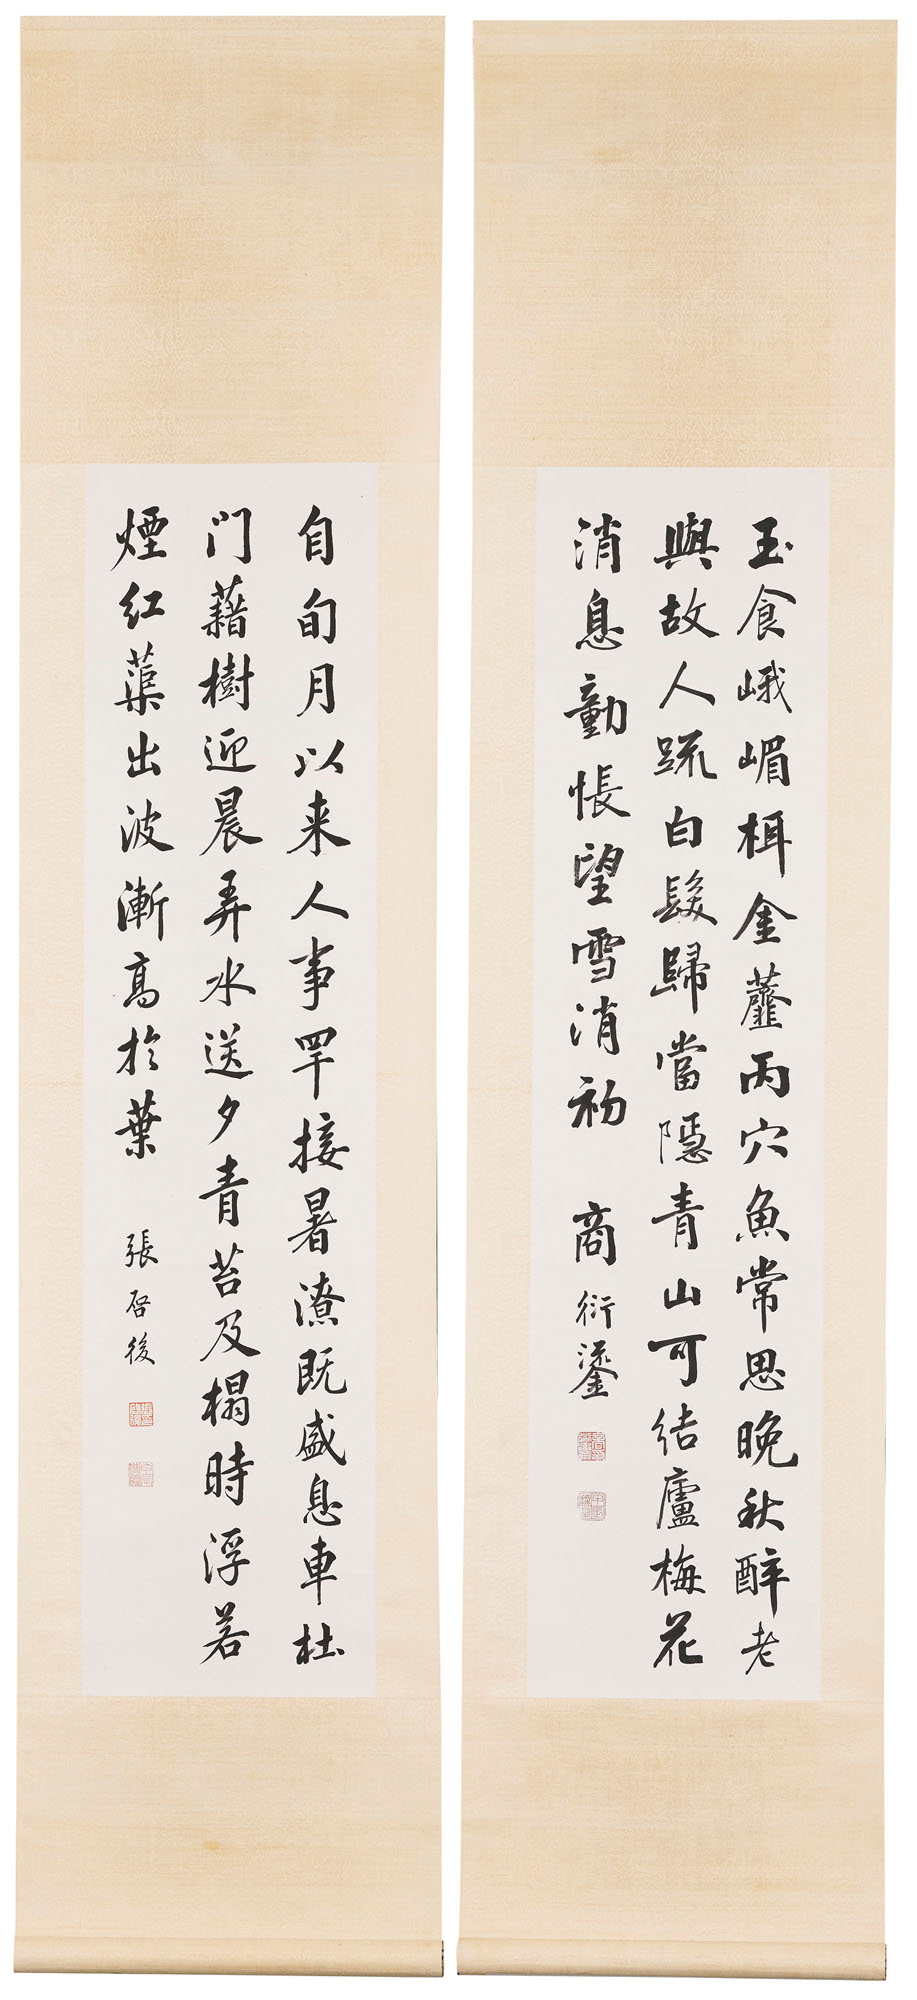 玉食峨嵋栮金虀丙穴魚常思晚秋醉老
與故人疏白髮歸當隱青山可結廬梅花
消息動悵望雪消初
商衍鎏
自旬月以来人事罕接暑潦既盛息車杜
门藉樹迎晨弄水送夕青苔及榻時浮若
煙红蕖出波漸高於葉
張启後